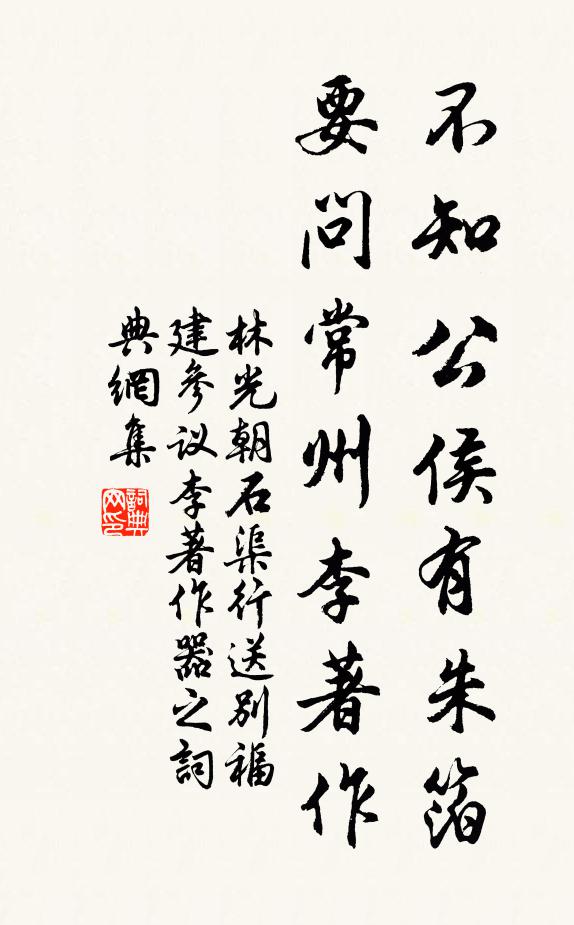 不知公侯有朱箔
要問常州李著作
林光朝石渠行送別福
建參议李著作器之詞
典網集
詞典网印